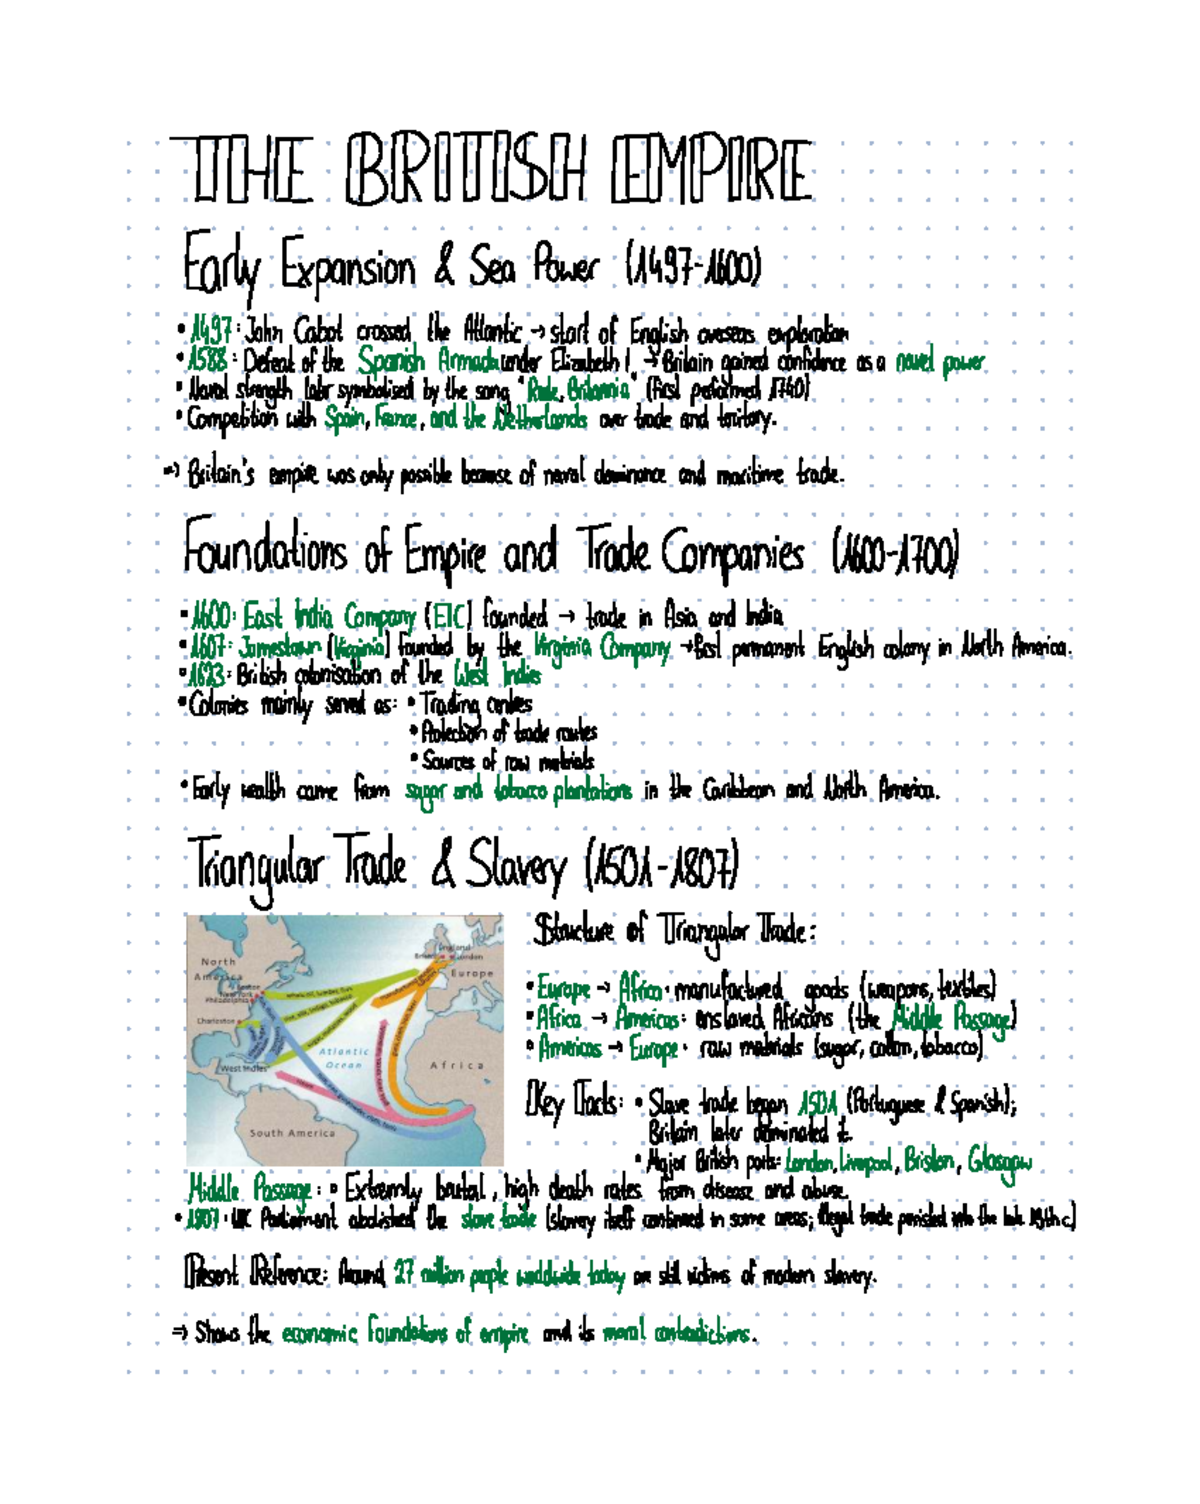 THE BRITISH EMPIRE
Early Expansion & Sea Power (1497-1600)
• 1497: John Cabot crossed the Atlantic → start of English overseas exploration
• 1588: Defeat of the Spanish Armada under Elizabeth I. → Britain gained confidence as a naval power
• Naval strength later symbolised by the song "Rule, Britannia" (first performed 1740)
• Competition with Spain, France, and the Netherlands over trade and territory.
⇒ Britain's empire was only possible because of naval dominance and maritime trade.
Foundations of Empire and Trade Companies (1600-1700)
• 1600: East India Company (EIC) founded → trade in Asia and India
• 1607: Jamestown (Virginia) founded by the Virginia Company → first permanent English colony in North America.
• 1623: British colonisation of the West Indies
• Colonies mainly served as: • Trading centres
• Protection of trade routes
• Sources of raw materials
• Early wealth came from sugar and tobacco plantations in the Caribbean and North America.
Triangular Trade & Slavery (1501-1807)
Structure of Triangular Trade:
• Europe → Africa: manufactured goods (weapons, textiles)
• Africa → Americas: enslaved Africans (the Middle Passage)
• Americas → Europe: raw materials (sugar, cotton, tobacco)
Key Facts: • Slave trade began 1501 (Portuguese & Spanish);
Britain later dominated it.
• Major British ports: London, Liverpool, Bristol, Glasgow
North
America
Boston
New York
Philadelphia
Charleston
West Indies
South America
Atlantic
Ocean
England
Bristol London
Europe
Africa
Middle Passage: • Extremly brutal, high death rates from disease and abuse.
• 1807: UK Parliament abolished the slave trade (slavery itself continued in some areas; illegal trade persisted into the late 19th c.)
Present Reference: Around 27 million people worldwide today are still victims of modern slavery.
⇒ Shows the economic foundations of empire and its moral contradictions.